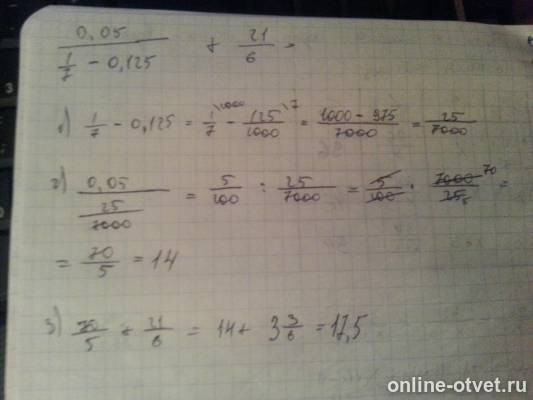 0,05 / (1/7 - 0,125) + 21/6 =
1) 1/7 - 0,125 = 1/7 \1000 - 125/1000 \7 = (1000 - 975)/7000 = 25/7000
2) 0,05 / (25/7000) = 5/100 : 25/7000 = 5/100 · 7000/25 70 5 =
= 70/5 = 14
3) 70/5 + 21/6 = 14 + 3 3/6 = 17,5
online-otvet.ru